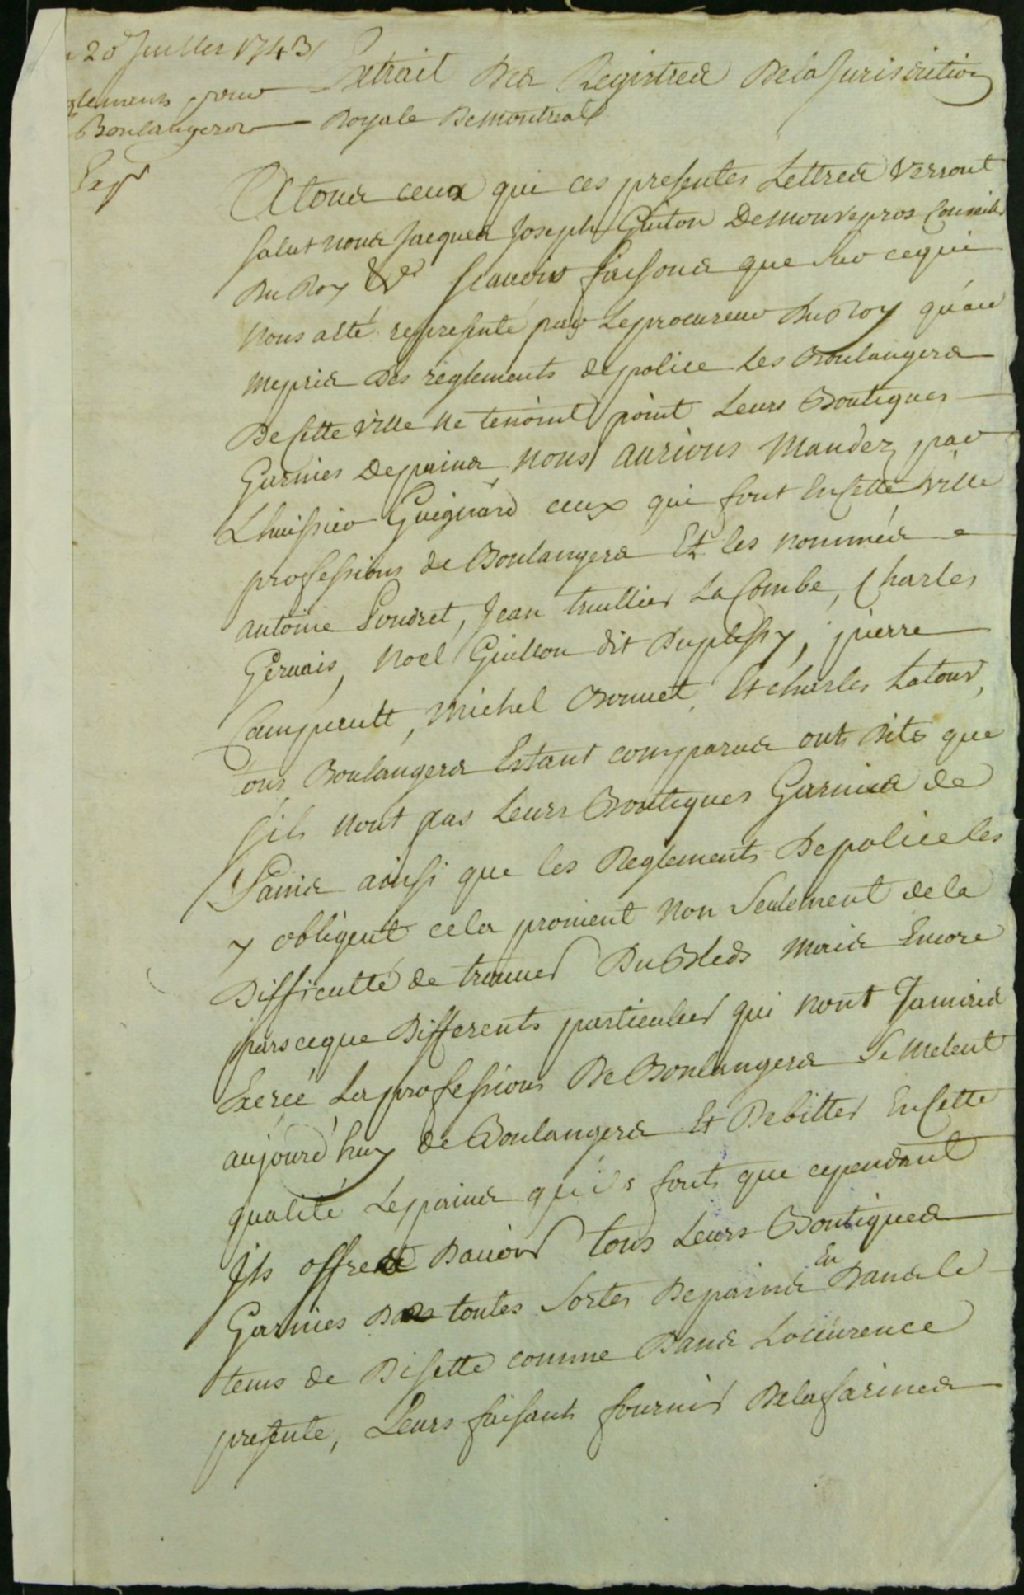 20 Juillet 1743
Extrait Des Registres De la Jurisdiction
glements pour
Boulangers
Royale De Montreal
A tous ceux qui ces presentes Lettres verront
salut nous Jacques Joseph Guiton De monrepos Conseiller
Du Roy &ca scavoir faisons que sur cequi
Nous a êté representé par Le procureur Du Roy qu'au
mepris des règlements de police les Boulangers
De Cette ville ne tenoint point Leurs Boutiques
Garnies De pains nous aurions Mandez par
L'huissier Guignard ceux qui font En Cette ville
professions de Boulangers Et les nommés
antoine Poudret, Jean trullier La Combe, Charles
Gervais, Noel Guillon dit Duplessy, pierre
Campeault, Michel Bonnet, Et Charles Latour,
tous Boulangers Estant comparus onts Dits que
s'ils nont pas Leurs Boutiques Garnies de
Pains ainsi que les Reglements De police les
y obligent cela provient Non Seulement de la
Difficulté de trouver Du Bleds Mais Encore
parsceque Differents particulier qui nont Jamais
Exercé La professions De Boulangers Se melent
aujourd'huy de Boulangers Et Debitter En Cette
qualité Le pains qu'ils fonts que cependant
Ils offrent Davoir tous Leurs Boutiques
Garnies De toutes Sortes De pains En Dans le
tems de Disette comme Dans Loccurence
presente, Leurs faisants fournir De la farines